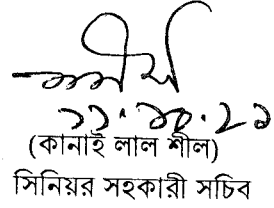 ১১.১০.২১
(কানাই লাল শীল)
সিনিয়র সহকারী সচিব